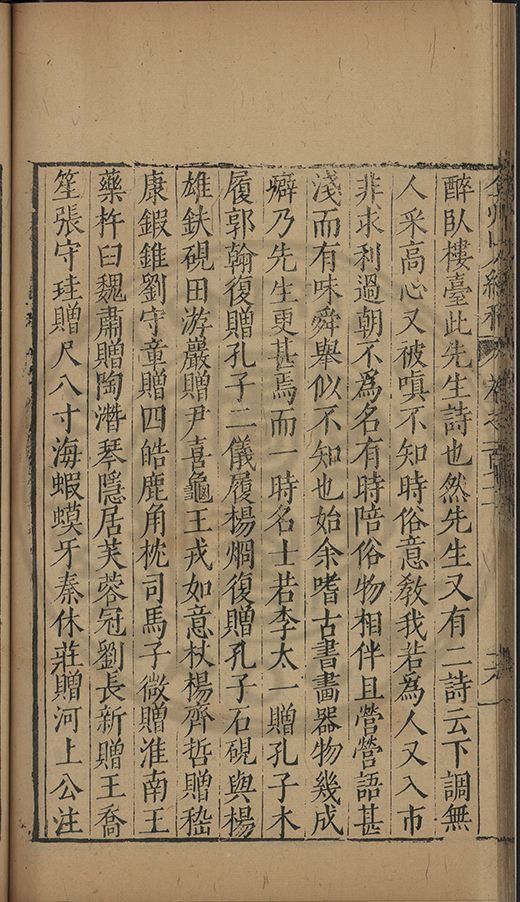 醉臥樓臺此先生詩也然先生又有二詩云下調無
人采高心又被嗔不知時俗意教我若為人又入市
非求利過朝不為名有時陪俗物相伴且營營語甚
淺而有味舜舉似不知也始余嗜古書畫器物幾成
癖乃先生更甚焉而一時名士若李太一贈孔子木
履郭翰復贈孔子二儀履楊烱復贈孔子石硯與楊
雄鈇硯田游巖贈尹喜龜王戎如意杖楊齊哲贈嵇
康鍜錐劉守童贈四皓鹿角枕司馬子微贈淮南王
藥杵臼魏肅贈陶潛琴隱居芙蓉冠劉長新贈王喬
笙張守珪贈尺八寸海蝦蟆牙秦休莊贈河上公注